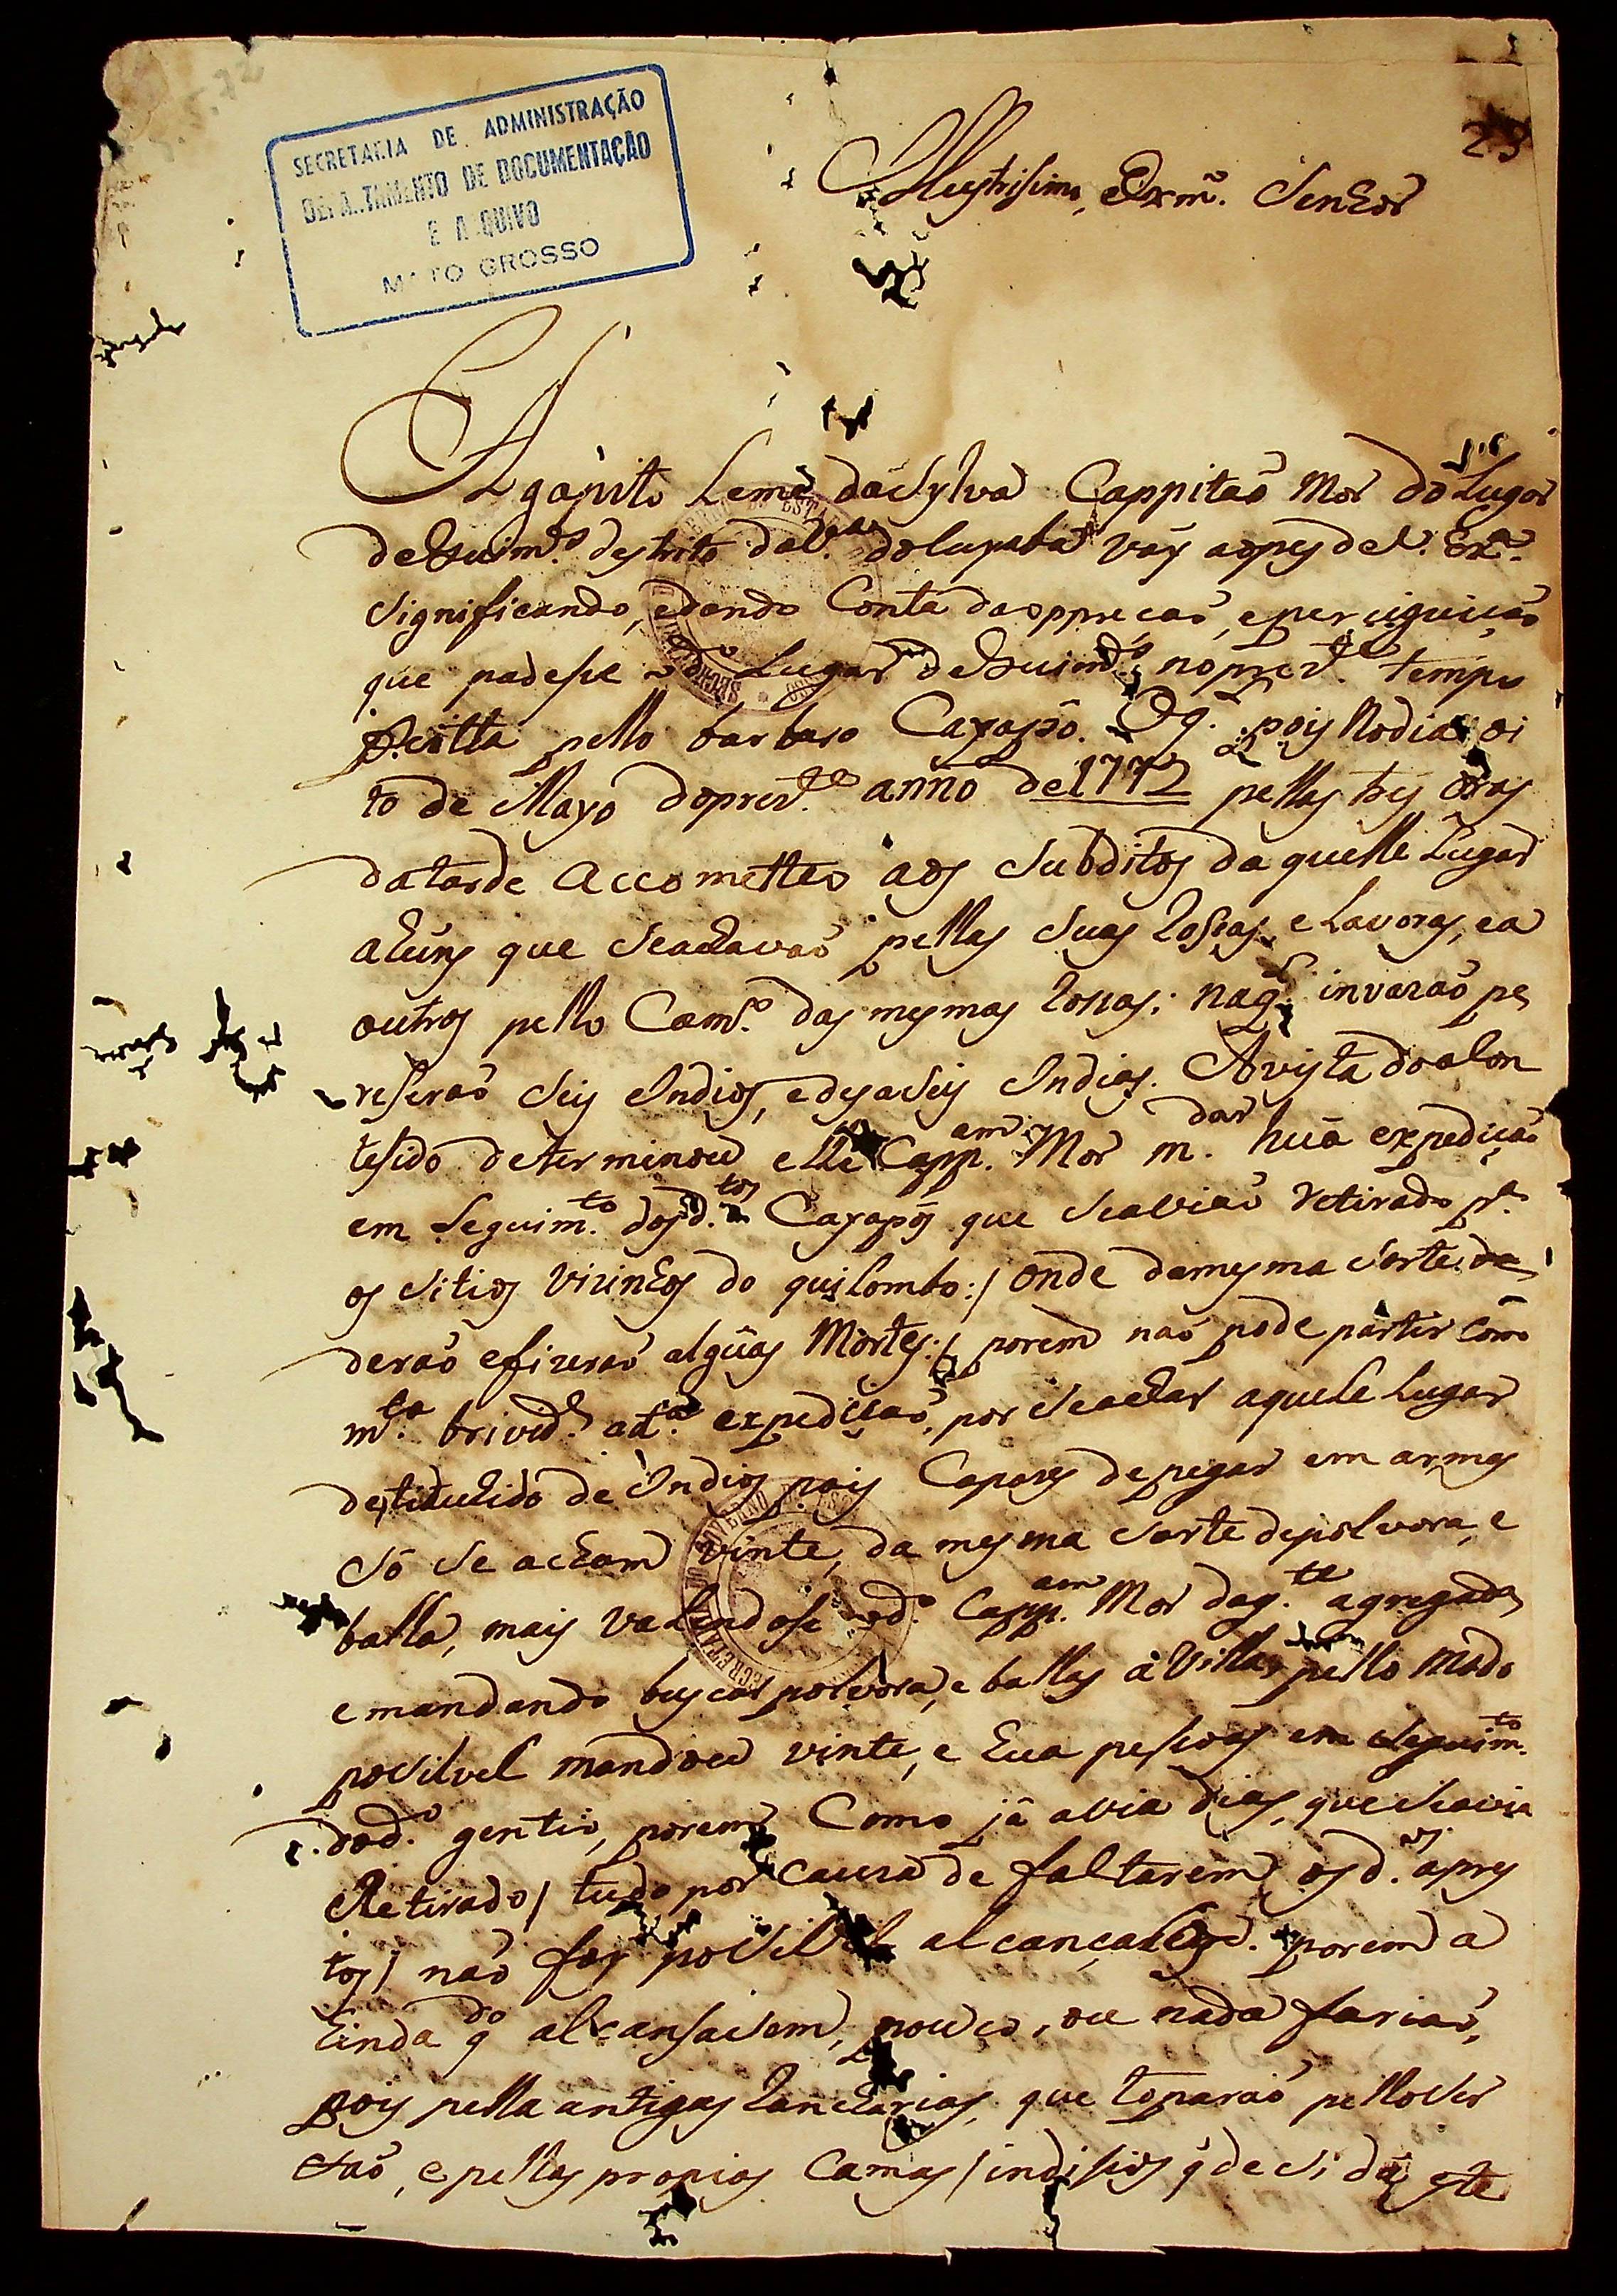 23
SECRETARIA DE ADMINISTRAÇÃO
DEPARTAMENTO DE DOCUMENTAÇÃO
E ARQUIVO
MATO GROSSO
Illustrisimo, eExmº. Senhor
Agapito Leme daSylva Cappitaõ Mor do Lugar
deGuimes. destrito daVª. doCuyaba vay aopes deV. Exª.
Significando, edando Conta daopprecaõ, eperciguicaõ
que padese o dº Lugar deGuimes. noprezte. tempo
feitta pello barbaro Cayapo. Oqˡ. pois Nodia oi
to de Mayo doprezte. anno de1772 pellas tres oras
datarde accometteo aos Subditos daquelle Lugar
ahuns que Seachavaõ pellas Suas Rossas, e Lavoras, ea
outros pello Camº. das mesmas Rossas: naqˡ invazaõ pe
reseraõ Seis Indios, edesaSeis Indias. Avista doalon
tesido determinou elle Cappam. Mor mdar huã expediçaõ
em Seguimto. dosdtos Cayapos que Seaviaõ Retirado pª.
os Sitios Vizinhos do quilombo:/ onde damesma Sorte
deraõ efizeraõ algũas Mortes:/ porem naõ pode partir Com
mta. brivide. adtª. expediçaõ, por Seachar aquele Lugar
destituhido de Indios pois Capazes depegar em armas
Só Se acham vinte, da mesma Sorte depolvora, e
balla, mais valendose odº. Cappam. Mor dagte. agregada
emandando buscar polvora, e ballas aVilla, pello modo
poSilvel mandou vinte, e hua pesoas em Seguimto.
dodº. gentio, porem Como já avia dias, queSeavia
Retirado/ tudo por Cauza de faltarem osdos. apres
tos/ naõ foy poSilvel alcançalos. porem a
hinda qdo alcansaSem, pouco, ou nada fariaõ,
pois pella antigas Rancharias, que toparaõ pelloSer
taõ, epellas propias Camas/ indisios q̃ deSi dá este